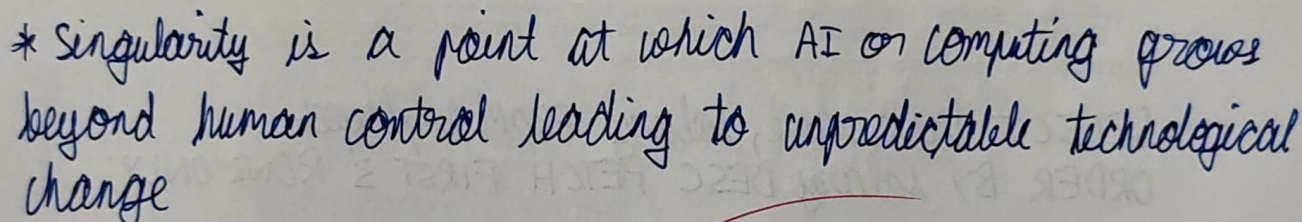 * Singularity is a point at which AI or computing grows
beyond human control leading to unpredictable technological
change